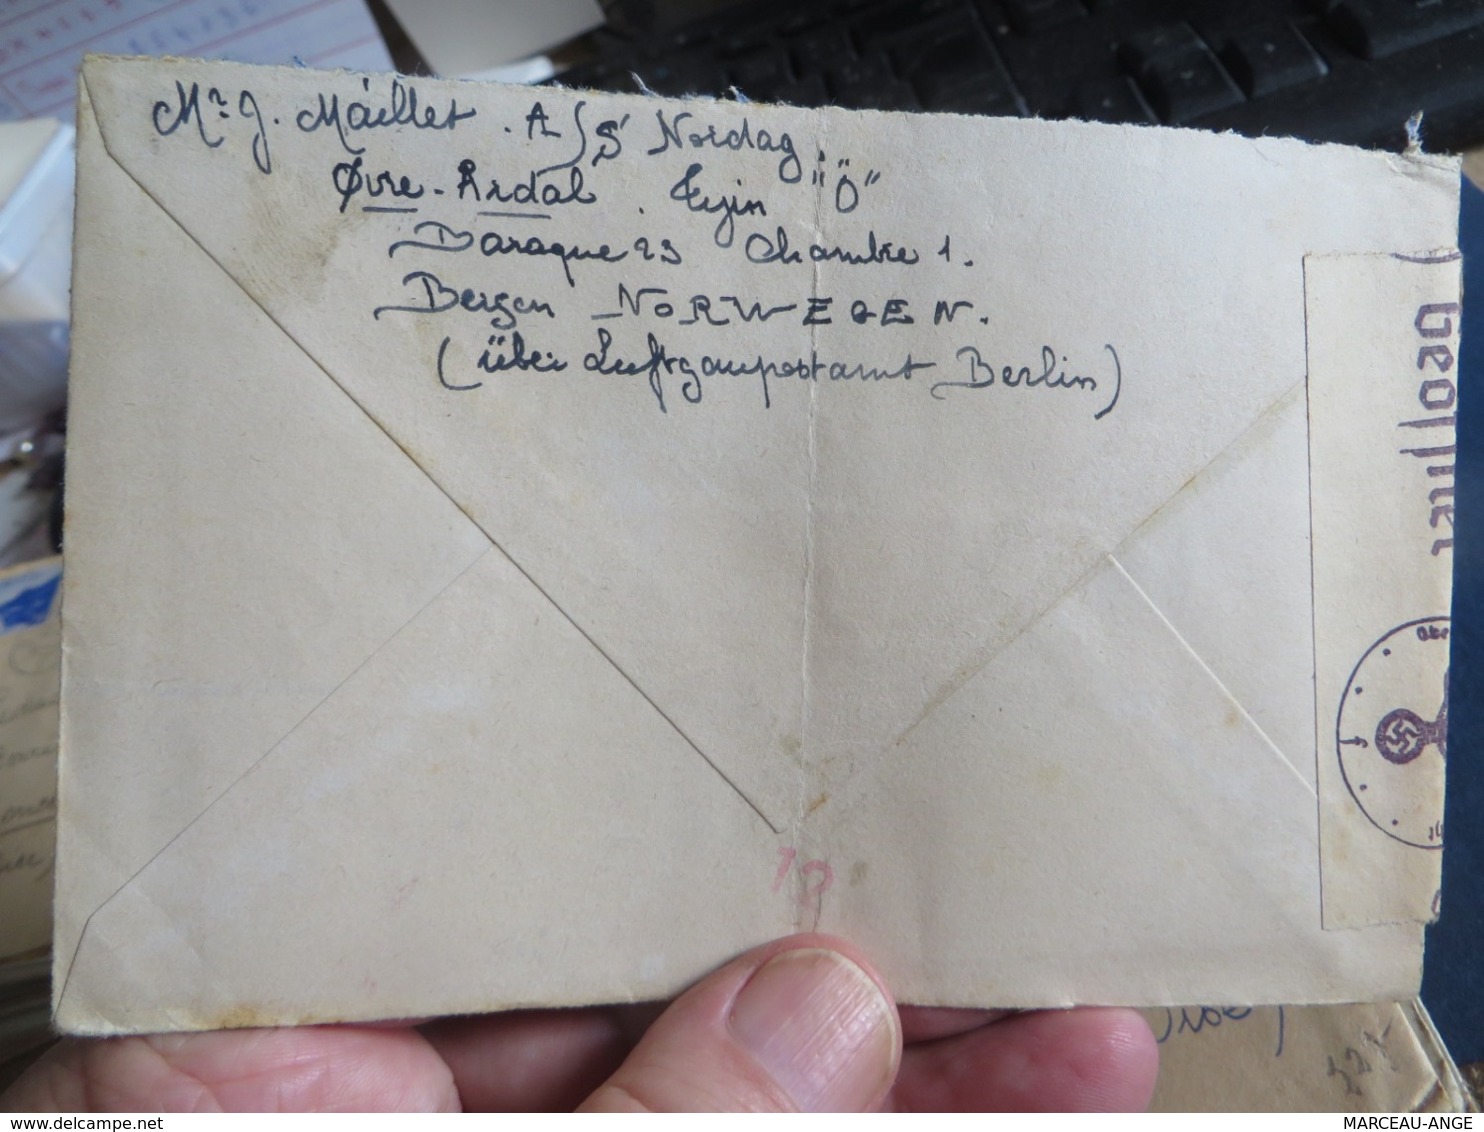 Mr. J. Maillet. A/S Nordag.
Øvre-Ardal. Tyin "Ö"
Baraque 23 Chambre 1.
Bergen NORWEGEN.
(über Luftgaupostamt Berlin)
Geöffnet
13
228
MARCEAU-ANGE